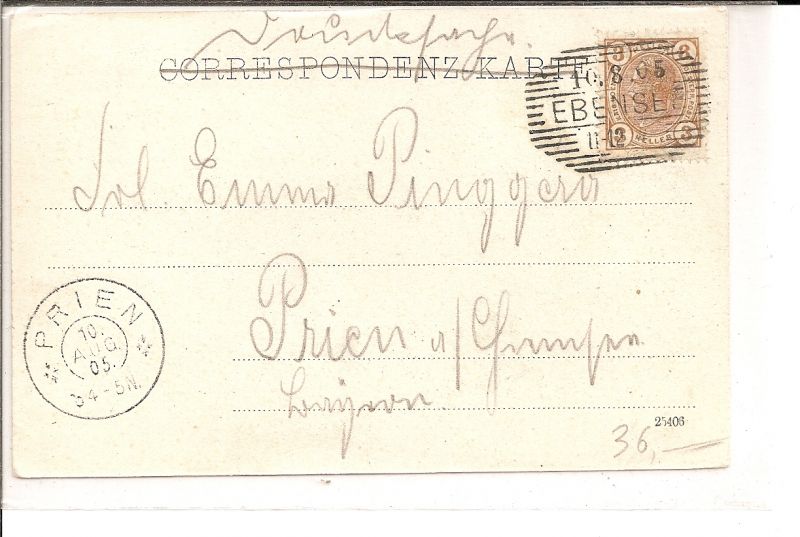 Drucksache.
CORRESPONDENZ-KARTE
3 3
10.8.05
EBENSEE
11-12
3 HELLER 3
Frl. Emma Pinggera
PRIEN
10.
AUG.
05.
4-5N.
Prien a/Chiemsee
Bayern.
25406
36,—